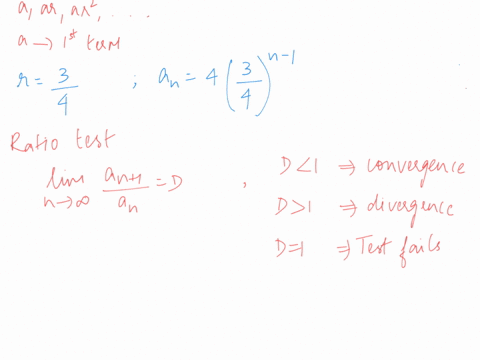 a, ar, ar², ....
a → 1st term
r = 3/4 ; aₙ = 4(3/4)ⁿ⁻¹
Ratio test
lim n→∞ aₙ₊₁/aₙ = D , D<1 ⇒ convergence
D>1 ⇒ divergence
D=1 ⇒ Test fails